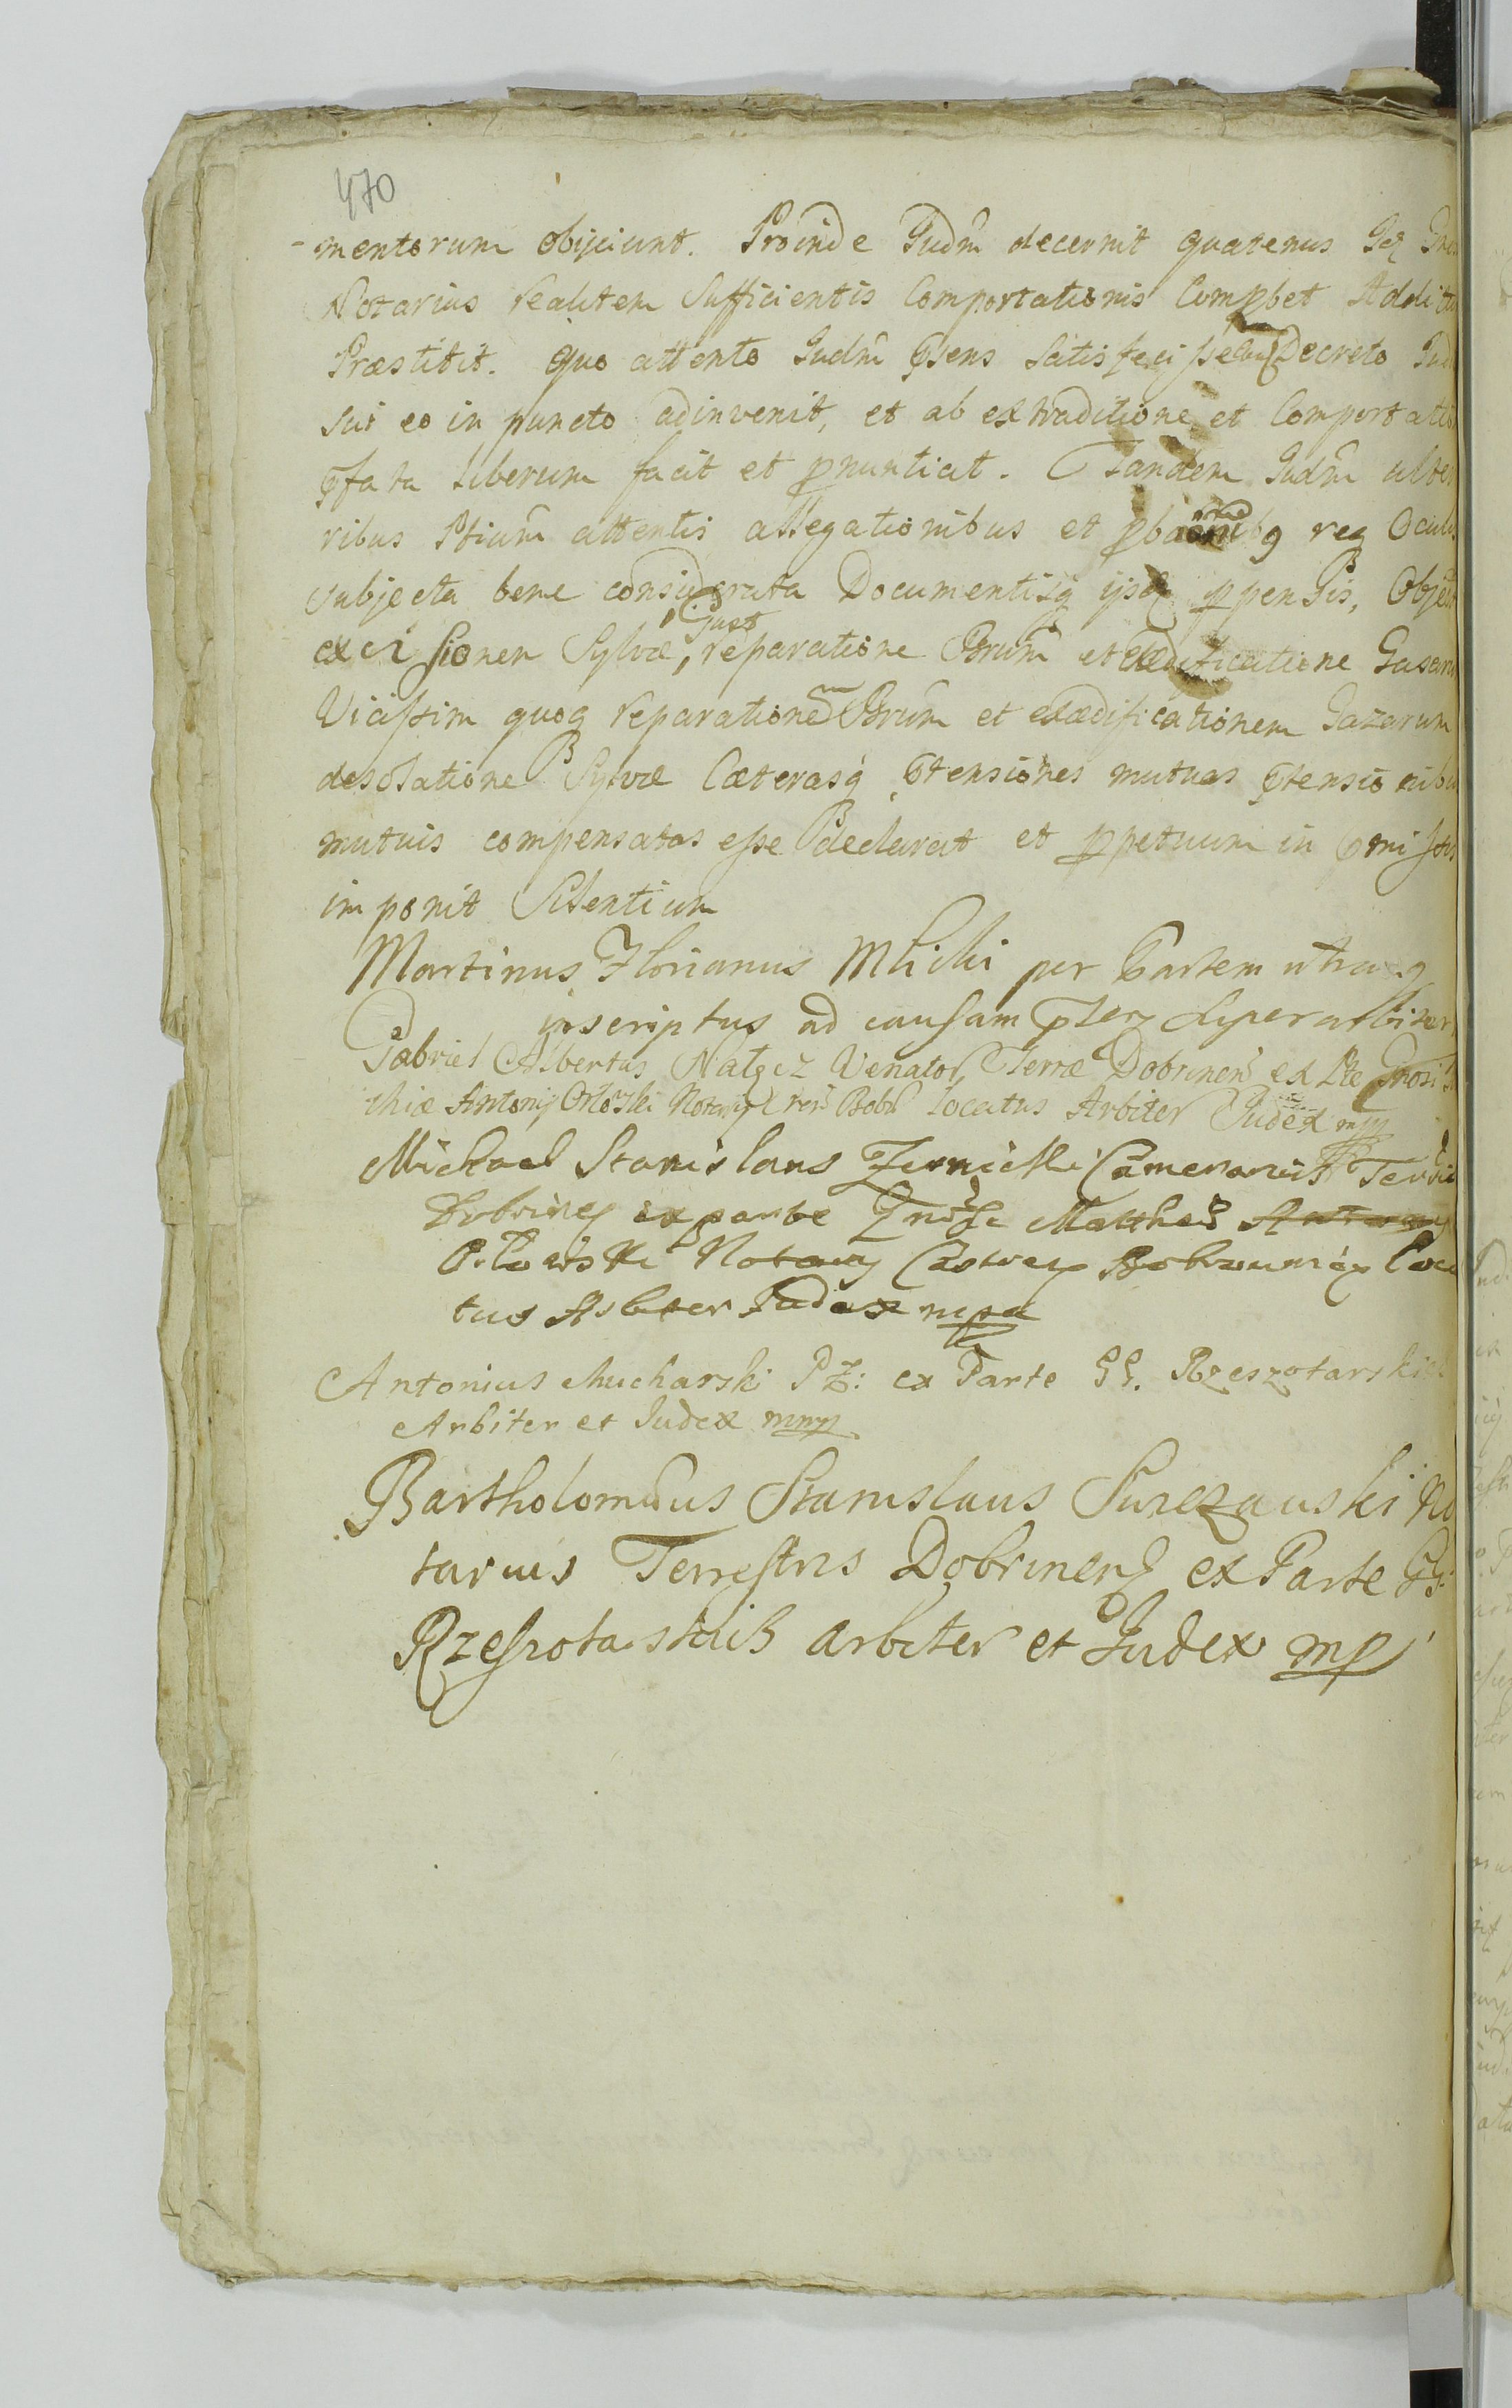 470
-mentorum obijciunt. Proinde Judm decernit quatenus Idq
Notarius realitem Sufficientis Comportationis Compbet Addit
Præstitit. Quo attento Judm psens Satisfecisse Decreto Jud
sui eo in puncto adinvenit, et ab extraditione et Comportatio
pfata Liberum facit et pnuntiat. Tandem Judm ulte
ribus Ptium attentis allegationibus et pbaonibq req Oculis
subjecta bene considerata Documentisq ijsq ppensis, Object
just
excisionem Sylvæ, reparatione Brum et exædificatione Gazaru
Vicissim quoq reparationem Brum et exædificationem Gazarum
desolatione Sylvæ Cæterasq ptensiones mutuas ptensionibu
mutuis compensatas esse declarat et ppetuum in pmissis
imponit Silentium
Martinus Florianus Mlicki per Partem utramq
inscriptus ad causam pntem Superarbiter
Gabriel Albertus Nałęcz Venator Terræ Dobrinen ex Pte Gnosi
Antonij Orłowski Notarij Bobr locatus Arbiter Judex mpp
Michael Stanislaus Zernicki Camerarius Terre
Dobrinen ex parte Gnosi Matthei Antonij
Orłowski Notarij Castren Bobrownicen Loca
tus Arbiter Judex mpa
Antonius Mucharski PZ: ex Parte GG. Rzeszotarskich
Arbiter et Judex mmp
Bartholomæus Stanislaus Surczauski No
tarius Terrestris Dobrinens ex Parte GG:
Rzeszotarskich arbiter et Judex mp